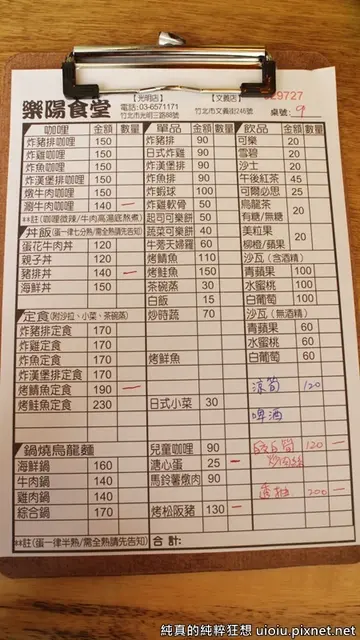 樂陽食堂
【光明店】
電話:03-6571171
竹北市光明三路88號
【文義店】
竹北市文義街246號
29727
桌號: 9
咖哩 金額 數量 單品 金額 數量 飲品 金額 數量
炸豬排咖哩 150 炸豬排 90 可樂 20
炸雞咖哩 150 日式炸雞 90 雪碧 20
炸魚咖哩 150 炸漢堡排 90 沙士 20
炸漢堡排咖哩 150 炸魚排 90 午後紅茶 45
燉牛肉咖哩 150 炸蝦球 100 可爾必思 25
涮牛肉咖哩 140 一 炸雞軟骨 50 烏龍茶 有糖/無糖 20
**註(咖哩微辣/牛肉高湯底熬煮) 起司可樂餅 50
丼飯(蛋一律七分熟/需全熟請先告知) 蔬菜可樂餅 40 美粒果 柳橙/蘋果 20
蛋花牛肉丼 120 牛蒡天婦羅 60
親子丼 120 烤鯖魚 110 沙瓦(含酒精)
豬排丼 120 一 烤鮭魚 150 青蘋果 100
海鮮丼 150 茶碗蒸 30 水蜜桃 100
白飯 15 白葡萄 100
定食(附沙拉、小菜、茶碗蒸) 炒時蔬 70 沙瓦(無酒精)
炸豬排定食 170 青蘋果 60
炸雞定食 170 水蜜桃 60
炸魚定食 170 烤鮮魚 白葡萄 60
炸漢堡排定食 170
烤鯖魚定食 190 一 涼筍 120
烤鮭魚定食 230 日式小菜 30
啤酒
鍋燒烏龍麵 兒童咖哩 90 筊白筍 120 一
海鮮鍋 160 溏心蛋 25 一 炒肉絲
牛肉鍋 140 馬鈴薯燉肉 90
雞肉鍋 140 透抽 200 一
綜合鍋 170 烤松阪豬 130 一
**註(蛋一律半熟/需全熟請先告知) 合計:
純真的純粹狂想 uioiu.pixnet.net